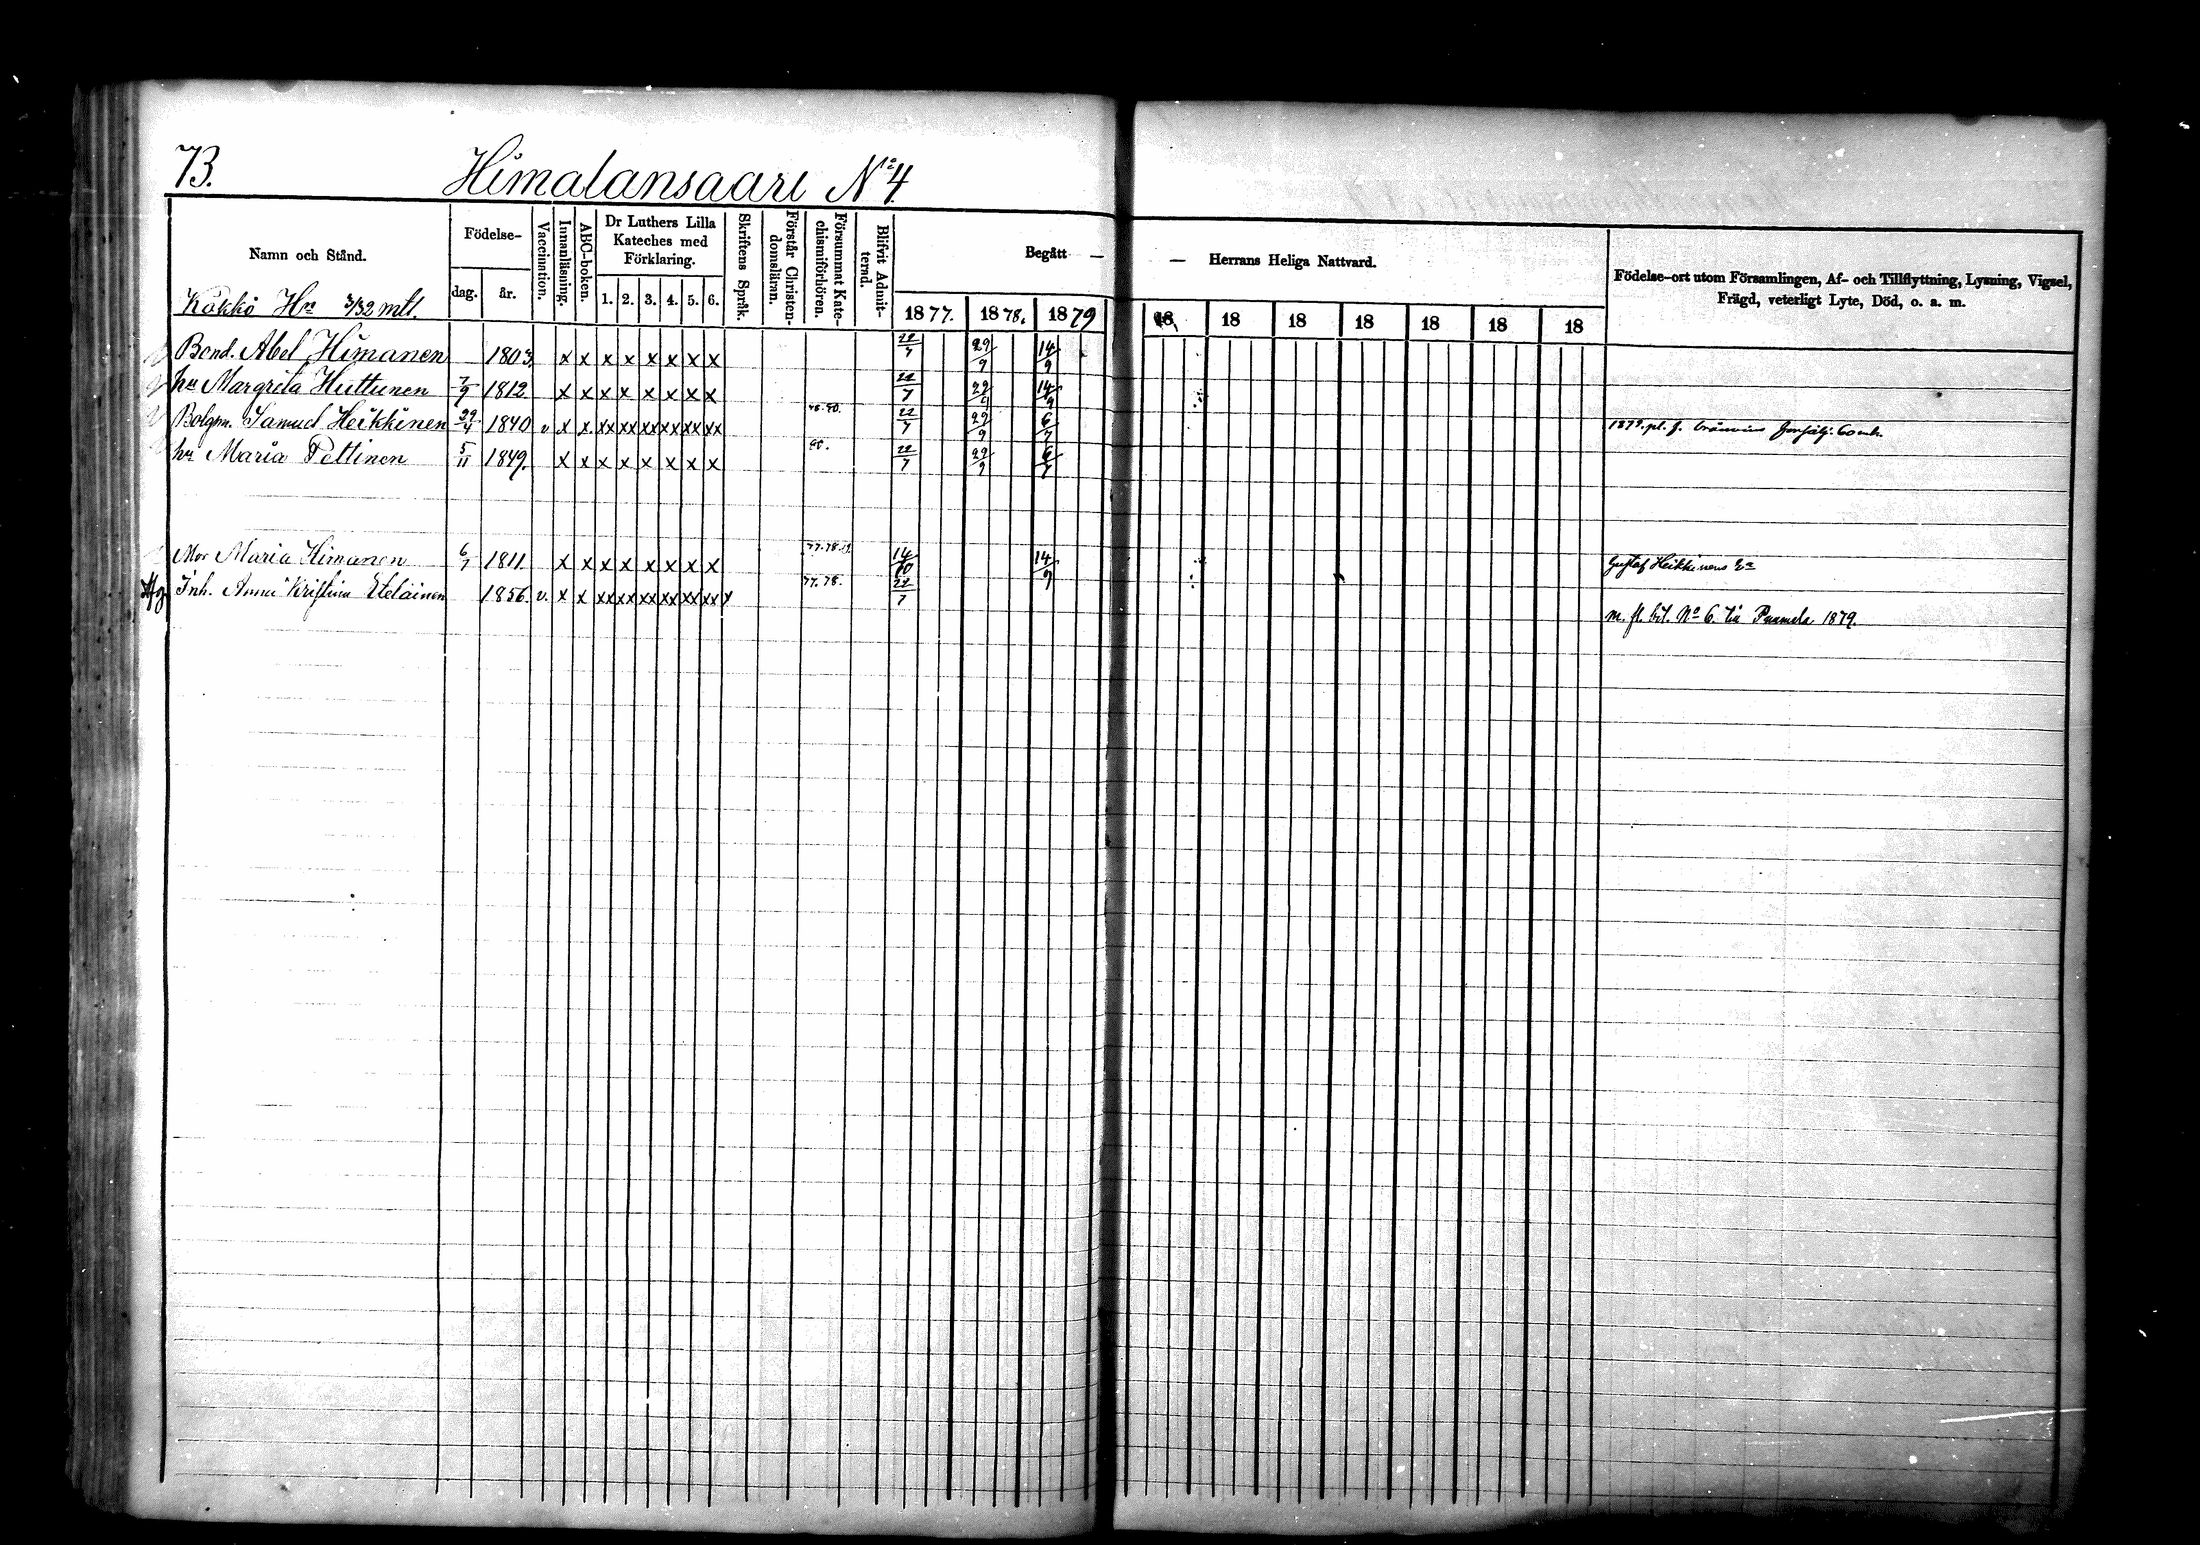 73. Himalansaari No 4
Namn och Stånd.
Födelse-
dag. år.
Vaccination.
Innanläsning.
ABC-boken.
Dr Luthers Lilla
Kateches med
Förklaring.
1. 2. 3. 4. 5. 6.
Skriftens Språk.
Förstår Christen-
domsläran.
Försummat Kate-
chismiförhören.
Blifvit Admit-
terad.
Begått — — Herrans Heliga Nattvard.
1877. 1878. 1879 18 18 18 18 18 18 18
Födelse-ort utom Församlingen, Af- och Tillflyttning, Lysning, Vigsel,
Frägd, veterligt Lyte, Död, o. a. m.
Kokko Hn 3/32 mtl.
Bond. Abel Himanen 1803. x x x x x x x x 22/7 29/9 14/9
hu Margreta Huttunen 7/9 1812 x x x x x x x x 22/7 29/9 14/9
Bolgm. Samuel Heikkinen 29/4 1840 v x x xx xx xx xx xx xx 22/7 29/9 6/7 1879 pl. f.
hu Maria Pettinen 5/11 1849. x x x x x x x x 22/7 29/9 6/7
Mor Maria Himanen 6/7 1811. x x x x x x x x 77.78. 14/10 14/9 Gustaf Heikkinens
Inh. Anna Kristina Eteläinen 1856. v. x x xx xx xx xx xx xx 77.78. 22/7
m. fl. bet. No 6. till Pumala 1879.